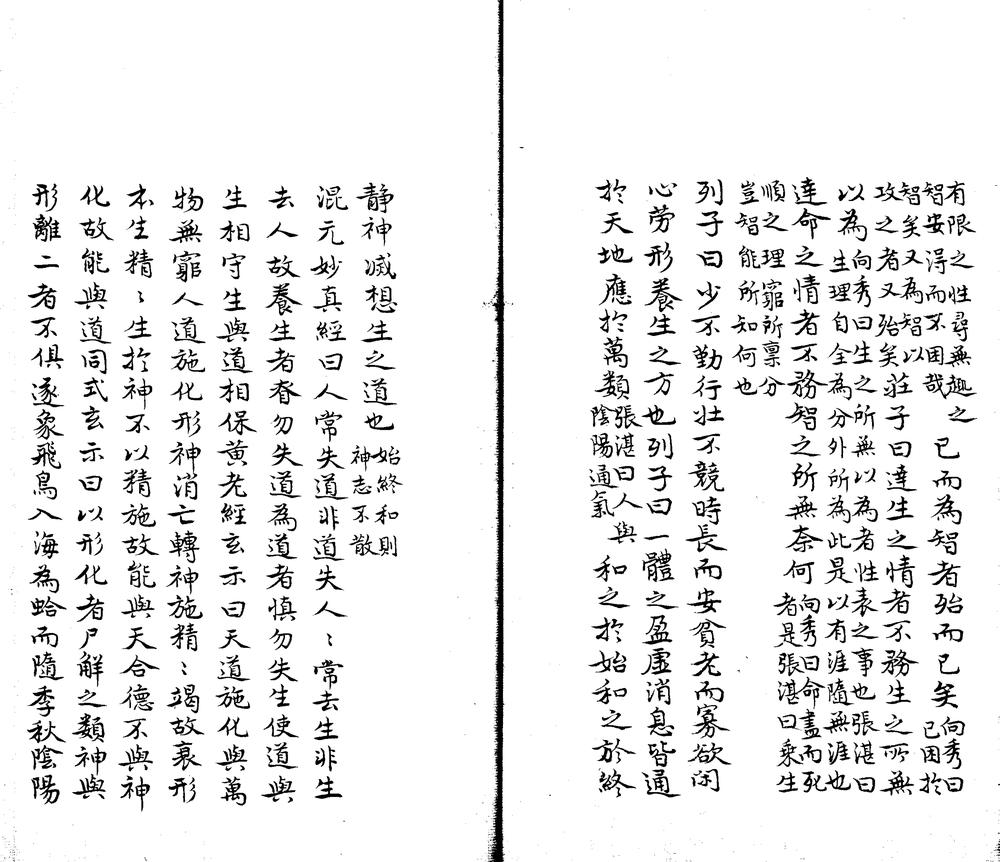 有限之性尋無趣之
智安得而不困哉
已而為智者殆而已矣
向秀曰
已困於
智矣又為智以
攻之者又殆矣
莊子曰達生之情者不務生之所無
以為
向秀曰生之所無以為者性表之事也張湛曰
生理自全為分外所為此是以有涯隨無涯也
達命之情者不務智之所無奈何
向秀曰命盡而死
者是張湛曰乘生
順之理窮所禀分
豈智能所知何也
列子曰少不勤行壯不競時長而安貧老而寡欲閑
心勞形養生之方也列子曰一體之盈虛消息皆通
於天地應於萬類
張湛曰人與
陰陽通氣
和之於始和之於終
靜神滅想生之道也
始終和則
神志不散
混元妙真經曰人常失道非道失人〻常去生非生
去人故養生者眘勿失道為道者慎勿失生使道與
生相守生與道相保黃老經玄示曰天道施化與萬
物無窮人道施化形神消亡轉神施精〻竭故衰形
本生精〻生於神不以精施故能與天合德不與神
化故能與道同式玄示曰以形化者尸解之類神與
形離二者不俱遂象飛鳥入海為蛤而隨季秋陰陽